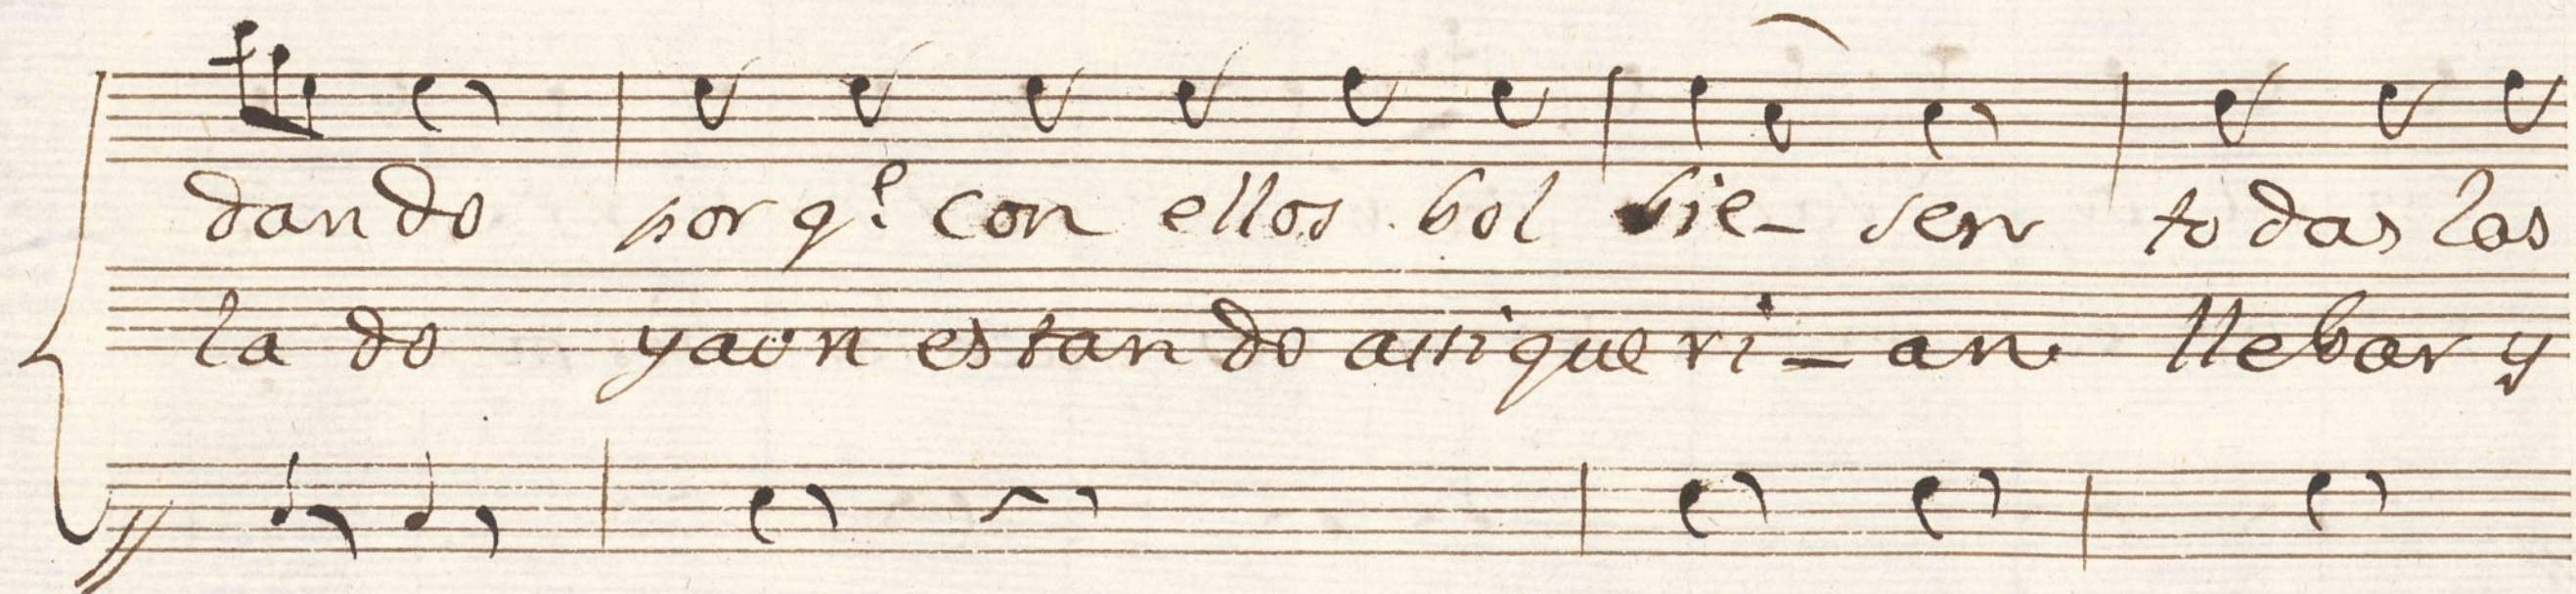 dan do por q.e con ellos bol bie- sen to das las
la do y aun es tan do assi que ri - an llebar y